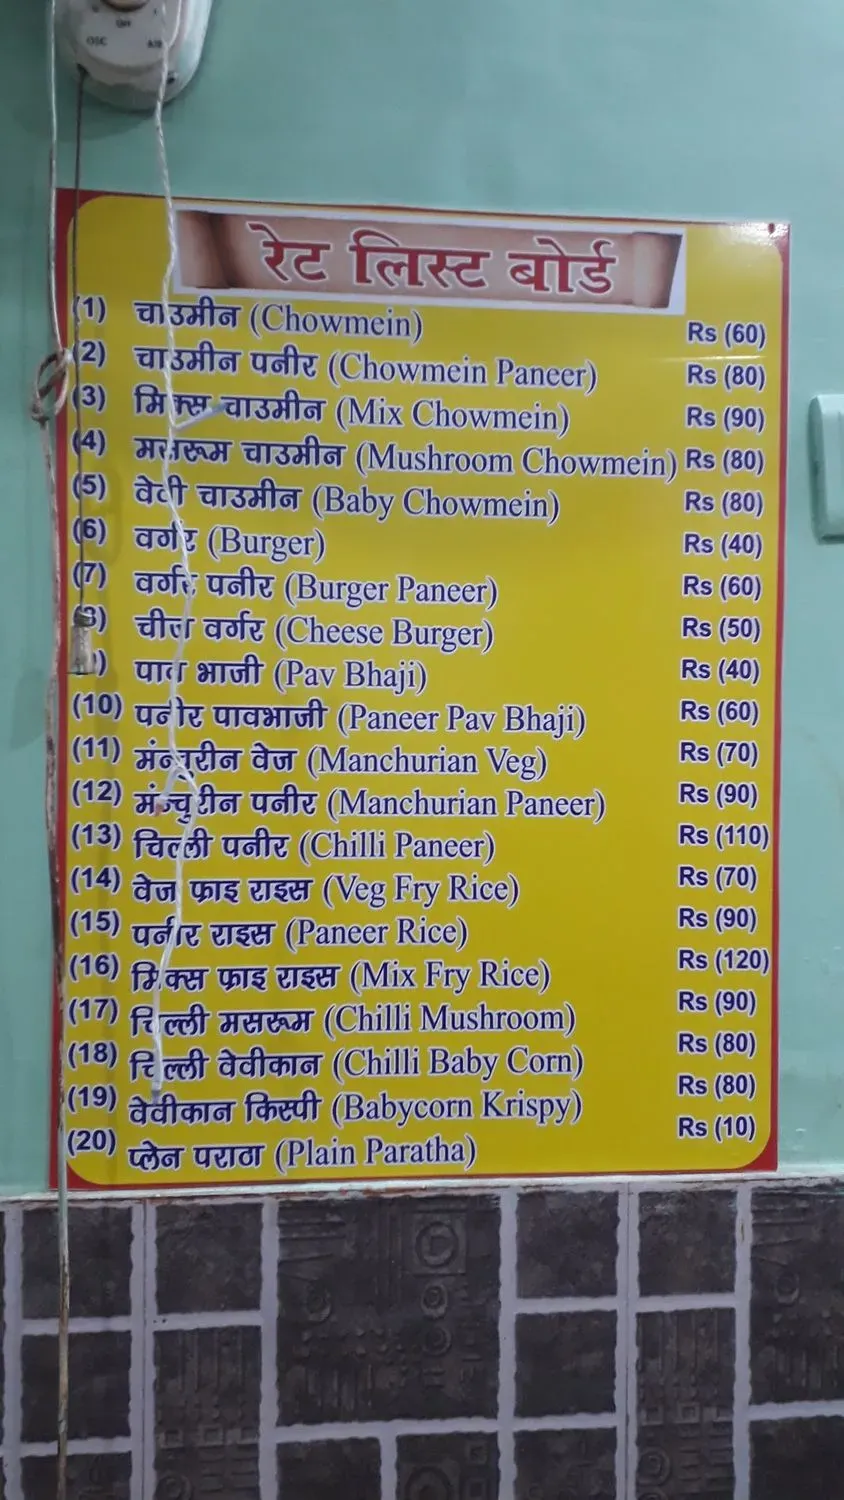 रेट लिस्ट बोर्ड
(1) चाउमीन (Chowmein) Rs (60)
(2) चाउमीन पनीर (Chowmein Paneer) Rs (80)
(3) मिक्स चाउमीन (Mix Chowmein) Rs (90)
(4) मसरूम चाउमीन (Mushroom Chowmein) Rs (80)
(5) वेवी चाउमीन (Baby Chowmein) Rs (80)
(6) वर्गर (Burger) Rs (40)
(7) वर्गर पनीर (Burger Paneer) Rs (60)
(8) चीज वर्गर (Cheese Burger) Rs (50)
) पाव भाजी (Pav Bhaji) Rs (40)
(10) पनीर पावभाजी (Paneer Pav Bhaji) Rs (60)
(11) मंन्चुरीन वेज (Manchurian Veg) Rs (70)
(12) मंन्चुरीन पनीर (Manchurian Paneer) Rs (90)
(13) चिल्ली पनीर (Chilli Paneer) Rs (110)
(14) वेज फ्राइ राइस (Veg Fry Rice) Rs (70)
(15) पनीर राइस (Paneer Rice) Rs (90)
(16) मिक्स फ्राइ राइस (Mix Fry Rice) Rs (120)
(17) चिल्ली मसरूम (Chilli Mushroom) Rs (90)
(18) चिल्ली वेवीकान (Chilli Baby Corn) Rs (80)
(19) वेवीकान किस्पी (Babycorn Krispy) Rs (80)
(20) प्लेन पराठा (Plain Paratha) Rs (10)